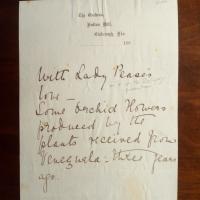 The Gardens,
With Lady Pease's
love —
Some Orchid Flowers
produced by the
plants received from
Venezuela – three years
ago.